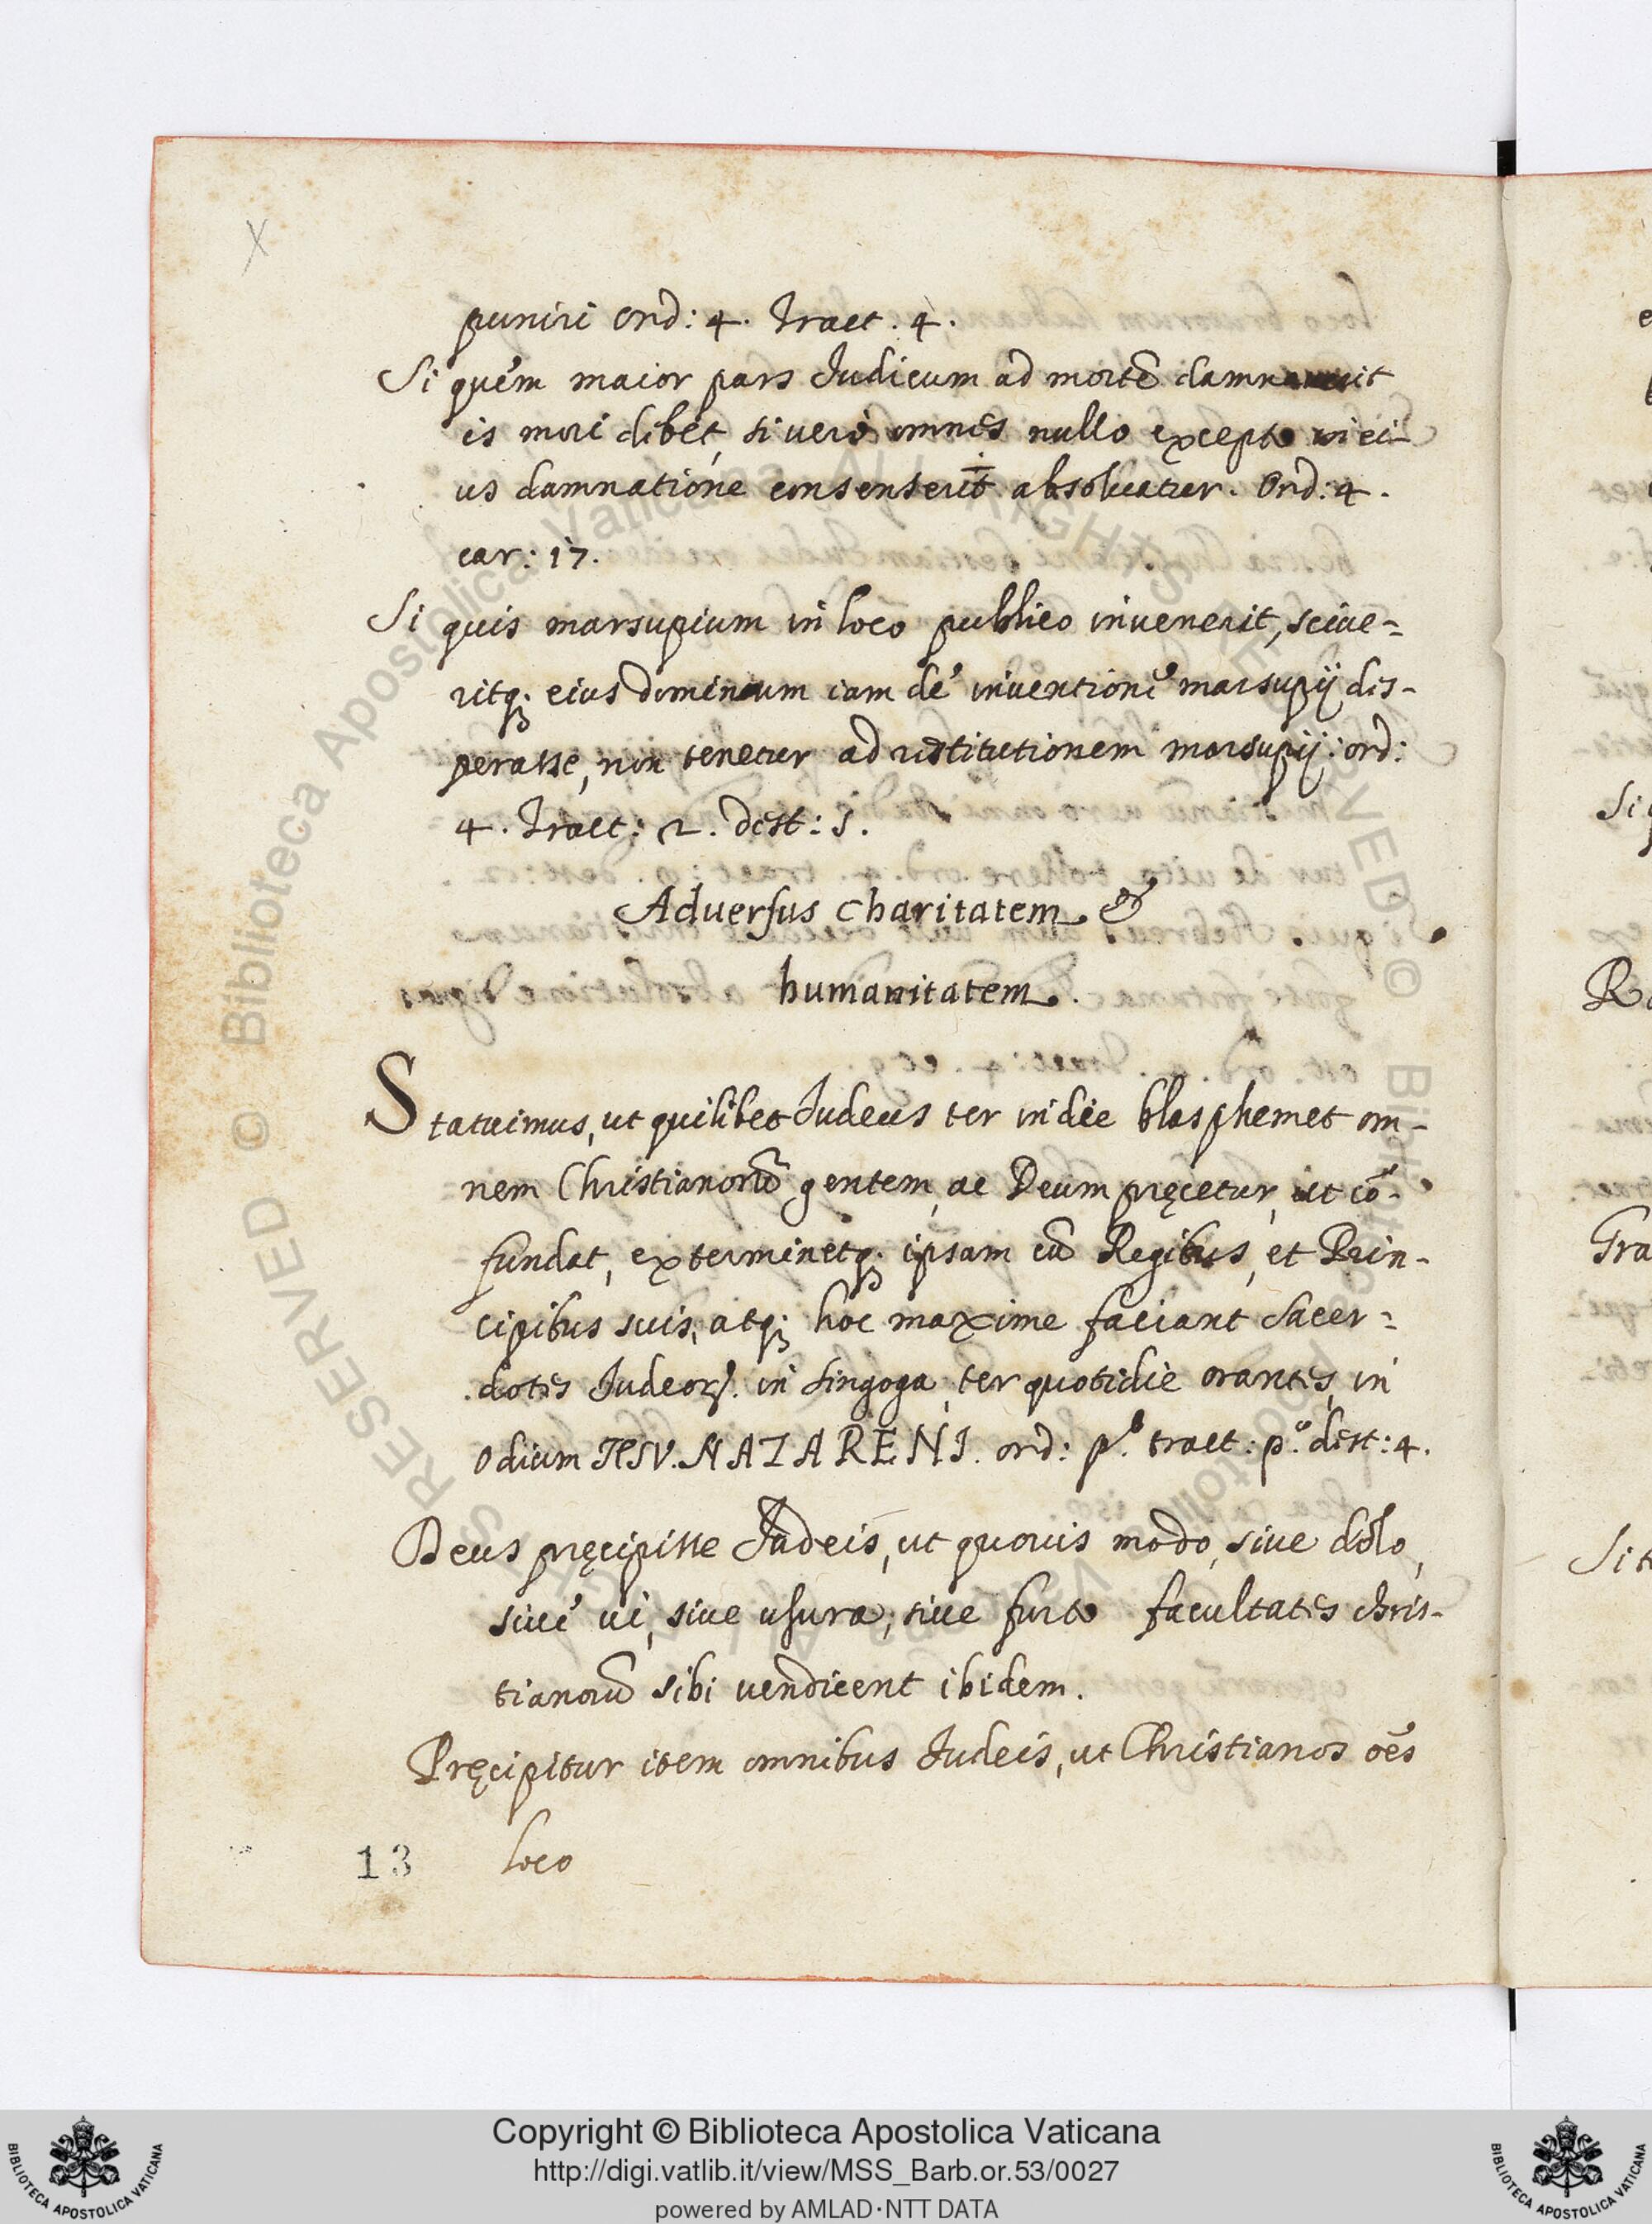 puniri ord: 4. Tract. 4.
Si quem maior pars Judicum ad mortē damnauerit
is mori debet, si uero omnes nullo excepto in ei-
us damnatione consenserīt absoluatur. Ord: 4.
car: 17.
Si quis marsupium in loco publico inuenerit, sciue-
ritq; eius dominum iam de inuentione marsupij des-
perasse, non tenetur ad restitutionem marsupij: ord:
4. Tract: 2. dist: 1.
Aduersus charitatem &
humanitatem.
Statuimus, ut quilibet Iudeus ter in die blasphemet om-
nem Christianorū gentem, ac Deum pręcetur, ut cō-
fundat, exterminetq; ipsam cū Regibus, et Prin-
cipibus suis, atq; hoc maxime faciant Sacer-
dotes Iudeoꝝ. in singoga ter quotidie orantes, in
odium IESV. NAZARENI. ord: p.º tract: p.º dist: 4.
Deus pręcipisse Judeis, ut quouis modo, siue dolo,
siue ui, siue usura, siue furto facultates chris-
tianorū sibi vendicent ibidem.
Pręcipitur item omnibus Iudeis, ut Christianos oēs
loco
13
Copyright © Biblioteca Apostolica Vaticana
http://digi.vatlib.it/view/MSS_Barb.or.53/0027
powered by AMLAD·NTT DATA
BIBLIOTECA APOSTOLICA VATICANA
BIBLIOTECA APOSTOLICA VATICANA